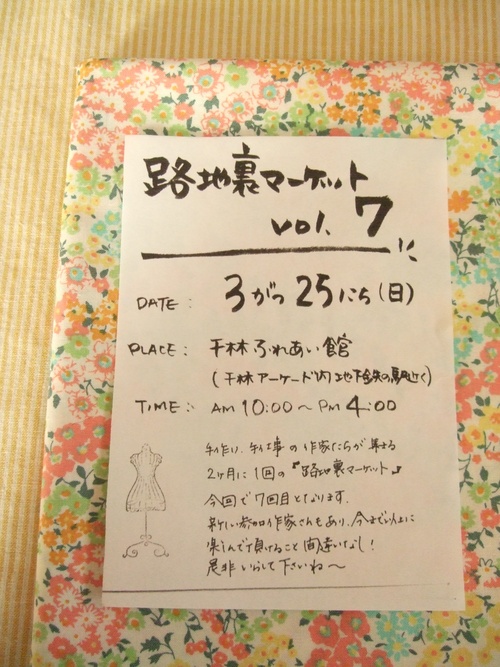 路地裏マーケット
vol. 7
DATE: 3がつ 25にち (日)
PLACE: 千林ふれあい館
(千林アーケード内 地下鉄の駅近く)
TIME: AM 10:00 ~ PM 4:00
手作り、手仕事の作家たちが集まる
2ヶ月に1回の『路地裏マーケット』
今回で7回目となります。
新しい参加作家さんもあり、今まで以上に
楽しんで頂けること間違いなし!
是非いらして下さいね〜